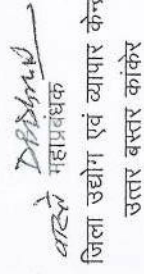 वास्ते
महाप्रबंधक
जिला उद्योग एवं व्यापार केन्
उत्तर बस्तर कांकेर